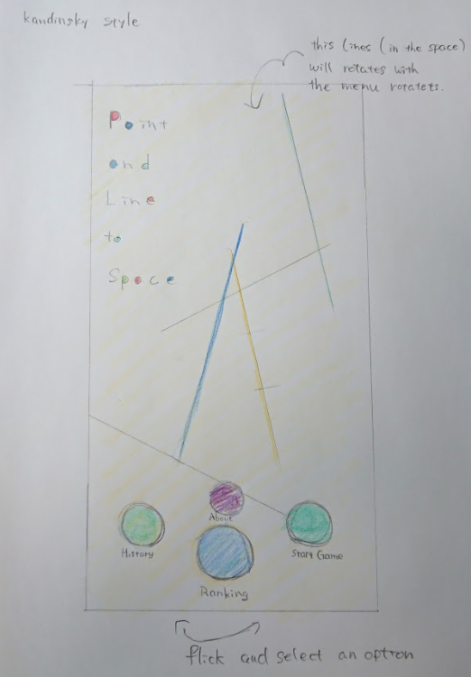 kandinsky style
this lines (in the space)
will rotates with
the menu rotatets.
Point
and
Line
to
Space
About
History
Start Game
Ranking
flick and select an option